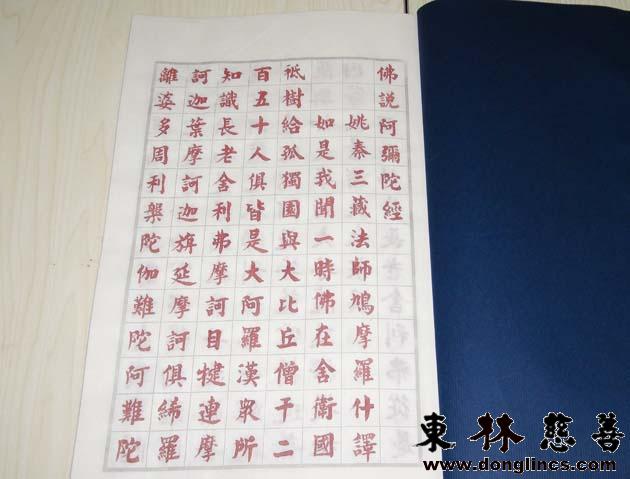 佛說阿彌陀經
姚秦三藏法師鳩摩羅什譯
如是我聞一時佛在舍衛國
祇樹給孤獨園與大比丘僧千二
百五十人俱皆是大阿羅漢眾所
知識長老舍利弗摩訶目犍連摩
訶迦葉摩訶迦旃延摩訶俱絺羅
離婆多周利槃陀伽難陀阿難陀
東林慈善
www.donglincs.com